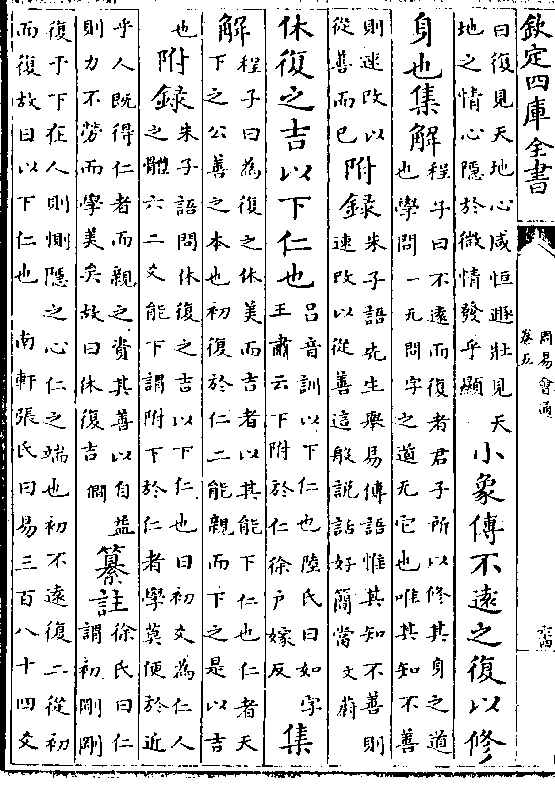 欽定四庫全書
曰復見天地心咸恒遯壯見天
地之情心隠於微情發乎顯
小象傳不遠之復以修
身也集解
程子曰不遠而復者君子所以修其身之道
也學問一无問字之道无它也唯其知不善
則速改以
從善而已
附録
朱子語先生舉易傳語惟其知不善則
速改以從善這般說話好簡當文蔚
休復之吉以下仁也
吕音訓以下仁也陸氏曰如字
王肅云下附於仁徐户嫁反
集
解
程子曰為復之休美而吉者以其能下仁也仁者天
下之公善之本也初復於仁二能親而下之是以吉
也
附録
朱子語問休復之吉以下仁也曰初爻為仁人
之體六二爻能下謂附下於仁者學莫便於近
乎人既得仁者而親之資其善以自益
則力不勞而學美矣故曰休復吉僩
纂註
徐氏曰仁
謂初剛剛
復于下在人則惻隠之心仁之端也初不遠復二從初
而復故曰以下仁也 南軒張氏曰易三百八十四爻
周易會通
卷五